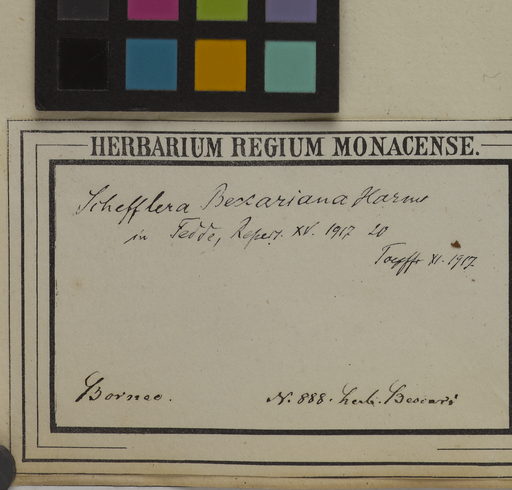 HERBARIUM REGIUM MONACENSE.
Schefflera Beccariana Harms
in Fedde, Repert. XV. 1917 20
XI. 1917
Borneo. N. 888. herb. Beccari